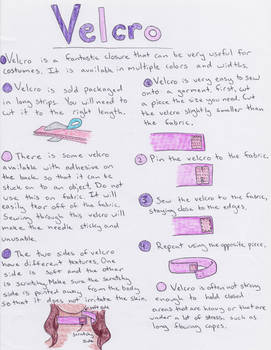 Velcro
Velcro is a fantastic closure that can be very useful for
costumes. It is available in multiple colors and widths.
Velcro is sold packaged
in long strips. You will need to
cut it to the right length.
There is some velcro
available with adhesive on
the back so that it can be
stuck on to an object. Do not
use this on fabric. It will
easily tear off of the fabric.
Sewing through this velcro will
make the needle sticky and
unusable.
The two sides of velcro
have different textures. One
side is soft and the other
is scratchy. Make sure the scratchy
side is pointed away from the body
so that it does not irritate the skin.
scratchy
side
Velcro is very easy to sew
onto a garment. First, cut
a piece the size you need. Cut
the velcro slightly smaller than
the fabric.
2 Pin the velcro to the fabric.
3 Sew the velcro to the fabric,
staying close to the edges.
4 Repeat using the opposite piece.
Velcro is often not strong
enough to hold closed
areas that are heavy or that are
under a lot of stress, such as
long flowing capes.